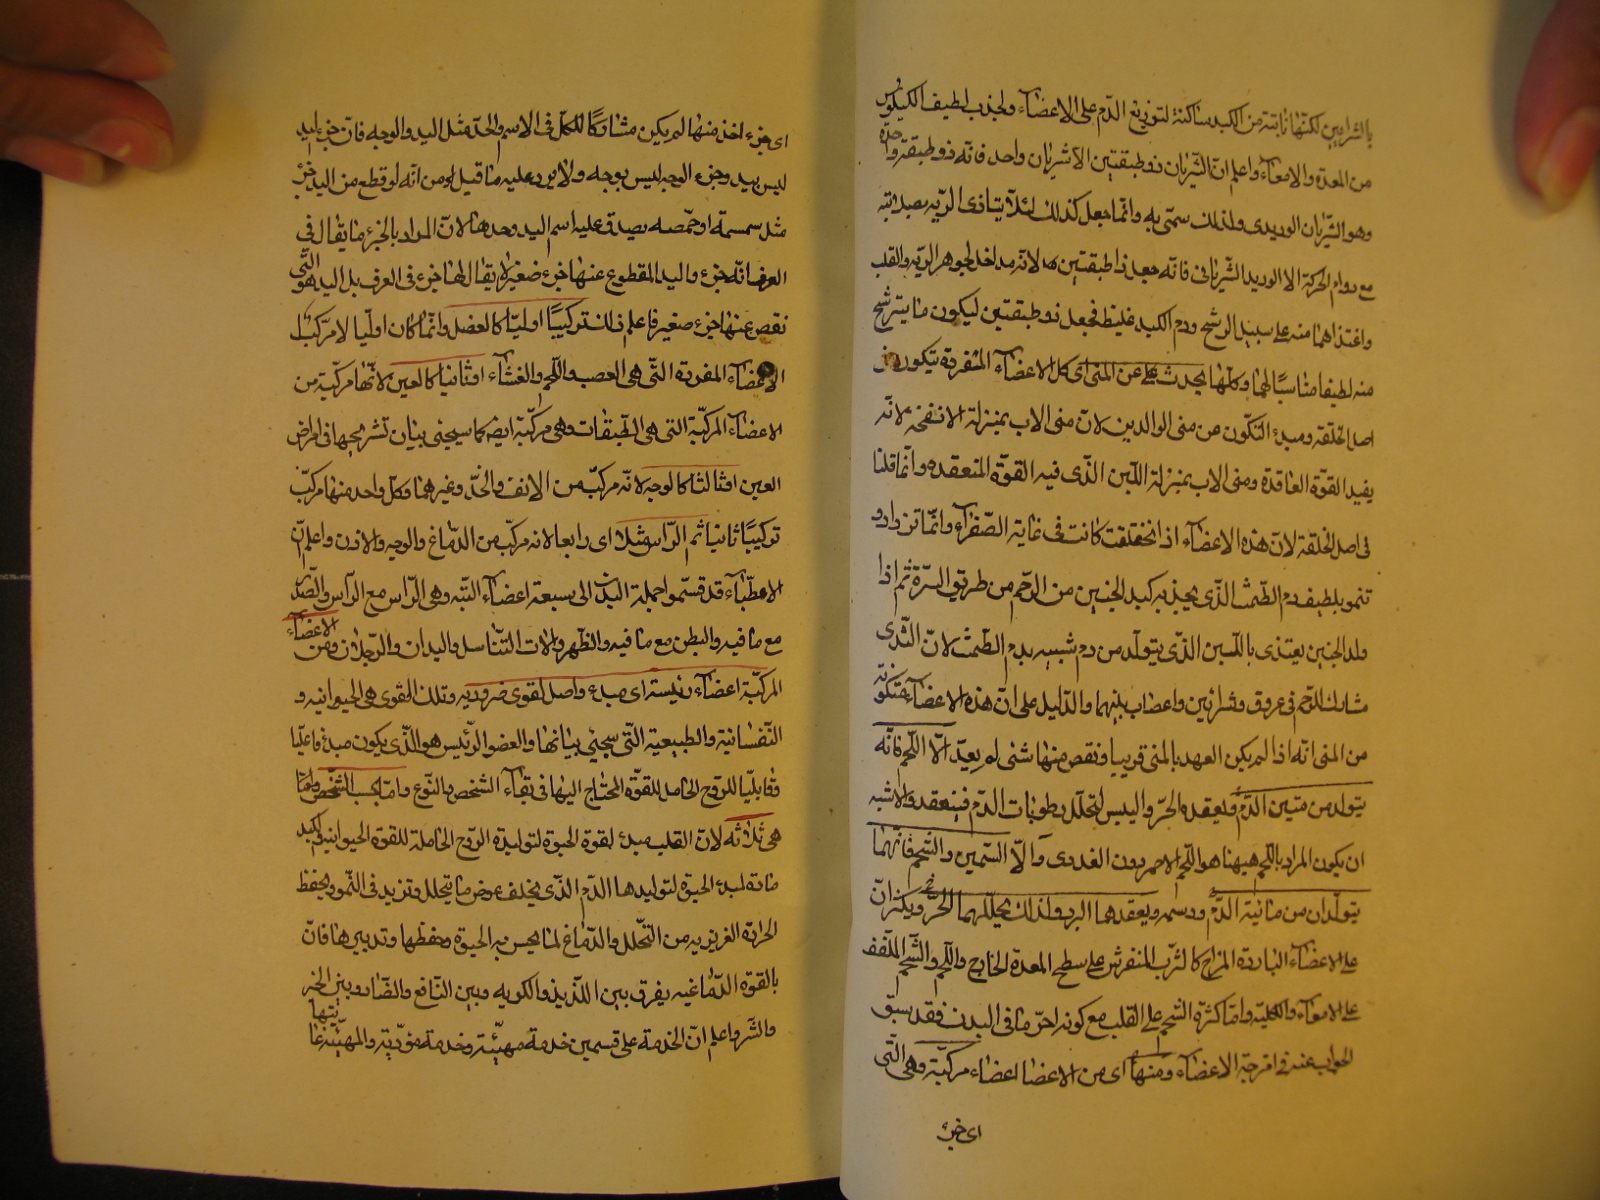 بالشرايين لكنّها نابتة من الكبد ساكنة لتوزيع الدّم على الاعضآء ولجذب لطيف الكيلوس
من المعدة والامعآء واعلم انّ الشّريان ذو طبقتين الا شريان واحد فانه ذو طبقة واحدة
وهو الشّريان الوريدى ولذلك سمّى به وانّما جعل كذلك لئلّا يتاذى الريه بصلابته
مع دوام الحركة الا الوريد الشّريانى فانّه جعل ذا طبقتين لانّه مداخل لجوهر الريّه والقلب
واغتذاهما منه على سبيل الرشح ودم الكبد غليظ فجعل ذو طبقتين ليكون ما يترشح
منه لطيفا مناسبًا لهما وكلّها يحدث عن المنى اى كل الاعضآء المتفرقة يتكون فى
اصل الخلقه ومبدء التكوّن من منى الوالدين لانّ منى الاب بمنزلة الانفخه لانّه
يفيد القوّة العاقدة ومنى الاب بمنزلة اللّبن الذّى فيه القوّة المنعقده وانّما قلنا
فى اصل الخلقة لانّ هذه الاعضآء اذا تخلقت كانت فى غاية الصّغرآء وانّما تزداد و
تنمو بلطيف دم الطّمث الذّى يجذبه كبد الجنين من الرّحم من طريق السرّة ثم اذا
ولد الجنين يغتذى باللّبن الذّى يتولّد من دم شبيه بدم الطّمث لانّ الثّدى
مشارك للرّحم فى عروق وشرائين واعصاب بينهما والدّليل على انّ هذه الاعضآء متكونة
من المنى انّه اذا لم يكن العهد بالمنى قريبا ونقص منها شئ لم يعدّ الّا اللّحم فانّه
يتولد من متين الدّم ويعقده الحرّ واليبس لتحلّل رطوبات الدّم فينعقد والاشبه
ان يكون المراد باللّحم هيهنا هو اللّحم الاحمر دون الغددى والّا السّمين والشّحم فانّهما
يتولّدان من مائية الدّم ودسمه ويعقدهما البرد ولذلك يحلّلهما الحرّ ويكثران
على الاعضآء الباردة المزاج كالثرب المنفرش على سطح المعدة الخارج واللّحم والشّحم الملتفّف
على الامعآء والكلية وامّا كثرة الشّحم على القلب مع كونه احرّ ما فى البدن فقد سبق
الجواب عنه فى امزجة الاعضآء ومنها اى من الاعضا اعضاء مركّبة وهى الّتى
اى جزء
اى جزء اخذ منها لم يكن مشاركًا للكلّ فى الاسم والحدّ مثل اليد والوجه فانّ جزء اليد
ليس بيد وجزء الوجه ليس بوجه ولا يرد عليه ما قيل لو من انّه لو قطع من اليد جزء
مثل سمسمة او حمّصه يصدق عليه اسم اليد وحدها لانّ المراد بالجزء ما يقال فى
العرف انّه جزء واليد المقطوع عنها جزء صغير لا يقال لها جزء فى العرف بل اليد هو الّتى
نقص عنها جزء صغير فاعلم ذلك تركيبًا اوليّا كالعضل وانّما كان اوليّا لا مركّب
الاعضآء المفردة الّتى هى العصب واللّحم والغشآء او ثانيا كالعين لانّها مركّبة من
الاعضآء المركبّة التى هى الطبقات وهى مركّبة ايضه كما سيجئ بيان تشريحها فى امراض
العين او ثالثا كالوجه لانّه مركّب من الانف والخدّ وغيرهما وكل واحد منها مركّب
تركيبًا ثانيا ثم الرّاس مثلا اى رابعا لانه مركّب من الدّماغ والوجه والاذن واعلم انّ
الاطبّآء قد قسّموا جملة البدن الى سبعة اعضآء التبه وهى الرّاس مع الرّاس والصّدر
مع ما فيه والبطن مع ما فيه والظّهر والات التّناسل واليدان والرّجلان ومن الاعضآء
المركبّة اعضآء رئيسة اى مبدء واصل لقوى ضروريه وتلك القوى هى الحيوانيه و
النّفسانية والطبيعية الّتى سيجئ بيانها والعضو الرئيس هو الّذى يكون مبدء فاعليّا
وقابليّا للرّوح الحامل للقوّة المحتاج اليها فى بقآء الشخص بالنّوع وامّا بحسب الشّخص
هى ثلاثه لانّ القلب مبدء لقوة الحيوة لتوليدة الرّوح الحاملة للقوة الحيوانيه والكبد
مادة لمبدء الحيوة لتوليدها الدّم الذّى يخلف عوض ما يتحلّل وتزيد فى النّمو ويحفظ
الحرارة الغريزيه من التّحلل والدّماغ لما يحس به الحيوة وحفظها وتدبيرها فانّ
بالقوه الدّماغيه يفرق بين اللّذيذ والكريه وبين النّافع والضّار وبين الخير
والشّر واعلم انّ الخدمة على قسمين خدمة مهيّئة وخدمة مؤدّية والمهيّئة